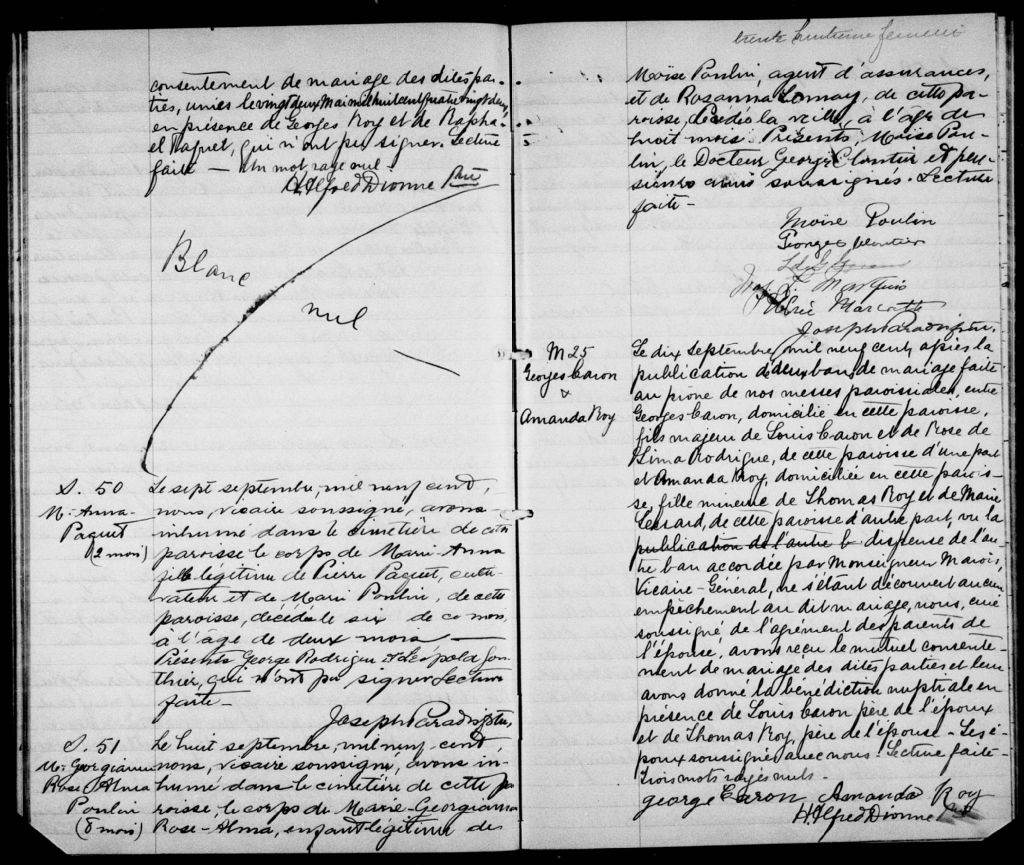 consentement de mariage des dites par-
ties, unies le vingt deux Mai mil huit cent quatre vingt deux,
en présence de Georges Roy et de Rapha-
el Paquet, qui n'ont pu signer. Lecture
faite — Un mot rayé nul -
H. Alfred Dionne Ptre
Blanc
nul
S. 50
M- Anna-
Paquet
(2 mois)
Le sept septembre, mil neuf cent,
nous, vicaire soussigné, avons
inhumé dans le cimetière de cette
paroisse le corps de Marie-Anna
fille légitime de Pierre Paquet, culti-
vateur et de Marie Poulin, de cette
paroisse, décédée le six de ce mois,
à l'âge de deux mois —
Présents George Rodrigue et Léopold Gon-
thier, qui n'ont pu signer Lecture
faite -
Joseph Paradis, ptre,
S. 51
M- Georgianna
Rose Alma
Poulin
(8 mois)
Le huit septembre, mil neuf cent,
nous, vicaire soussigné, avons in-
humé dans le cimetière de cette pa
roisse, le corps de Marie-Georgianna
Rose-Alma, enfant légitime de
trente huitième feuillet
Moïse Poulin, agent d'assurances,
et de Rosanna Lemay, de cette pa-
roisse, décédée la veille, à l'âge de
huit mois. Présents, Moïse Pou-
lin, le Docteur George Cloutier et plu-
sieurs amis soussignés. Lecture
faite -
Moïse Poulin
Georges Cloutier
Marquis
Marcotte
Joseph Paradis, ptre,
M 25
Georges Caron
&
Amanda Roy
Le dix septembre, mil neuf cent, après la
publication de deux bans de mariage faite
au prône de nos messes paroissiales, entre
Georges Caron, domicilié en cette paroisse,
fils majeur de Louis Caron et de Rose de
Lima Rodrigue, de cette paroisse d'une part
et Amanda Roy, domiciliée en cette parois-
se, fille mineure de Thomas Roy et de Marie
Lessard, de cette paroisse d'autre part, vu la
publication de l'autre b dispense de l'au-
tre ban accordée par Monseigneur Marois,
Vicaire-Général, ne s'étant découvert aucun
empêchement au dit mariage, nous, curé
soussigné de l'agrément des parents de
l'épouse, avons reçu le mutuel consente-
ment de mariage des dites parties et leur
avons donné la bénédiction nuptiale en
présence de Louis Caron père de l'époux
et de Thomas Roy, père de l'épouse - Les é-
poux soussignés avec nous - Lecture faite -
Trois mots rayés nuls -
george Caron Amanda Roy
H. Alfred Dionne